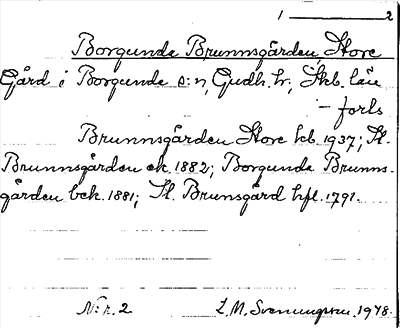 1 ——— 2
Borgunda Brunnsgården, Store
Gård i Borgunda s:n, Gudh. hr, Skb. län
– forts
Brunnsgården Store kb. 1937; St.
Brunnsgården ek. 1882; Borgunda Brunns-
gården bek. 1881; St. Brunsgård hfl. 1791.
N:r. 2 L. M. Svenungsson. 1978.